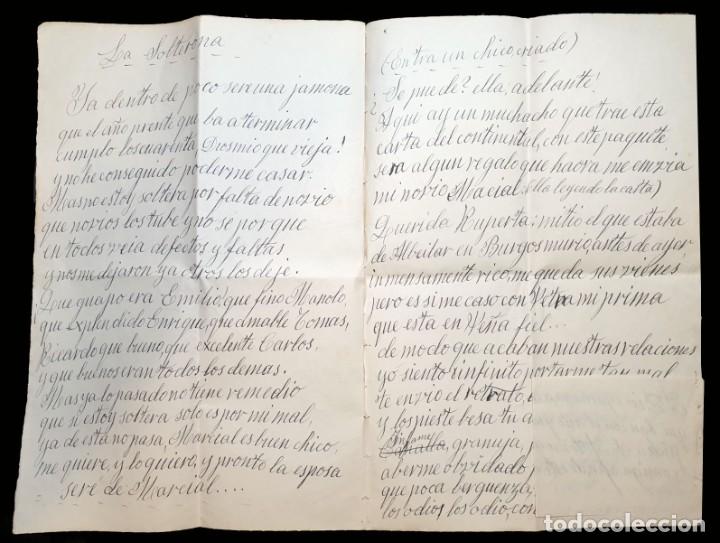 La Solterona
Ya dentro de poco sere una jamona
que el año pronte, que ba a terminar
cumplo los cuarenta Diosmio que vieja!
y no he conseguido poderme casar.
Mas no estoy soltera por falta de novio
que novios los tube y no se por que
en todos veia defectos y faltas
y nos me dejaron ya los deje.
Que guapo era Emilio! que fino Manolo,
que explendido Enrique, que amable Tomas,
Ricardo que bueno, que exelente Carlos,
y que buenos eran todos los demas.
Mas ya lo pasado no tiene remedio
que si estoy soltera solo es por mi mal,
ya de esta no pasa, Marcial es bien chico,
me quiere, y lo quiero, y pronto la esposa
seré de Marcial....
(Entra un chico, criado)
¿Se puede? ella, adelante!
Aqui ay un muchacho que trae esta
carta del continental, con este paquete,
sera algun regalo que haora me envia
mi novio Macial (ella leyendo la carta)
Querida Ruperta: mi tio el que estaba
de Albeitar en Burgos murio, antes de ayer
inmensamente rico, me queda sus vienes
pero es si me caso con Petra mi prima
que esta en Peña fiel...
de modo que acaban nuestras relaciones
yo siento infinito portarme tan mal
te envio el retrato,
y los pies te besa tu a
infame
Canalla, granuja, p
aberme olvidado
que poca berguenza,
los odios, los odio, con
todocoleccion
todocoleccion.net